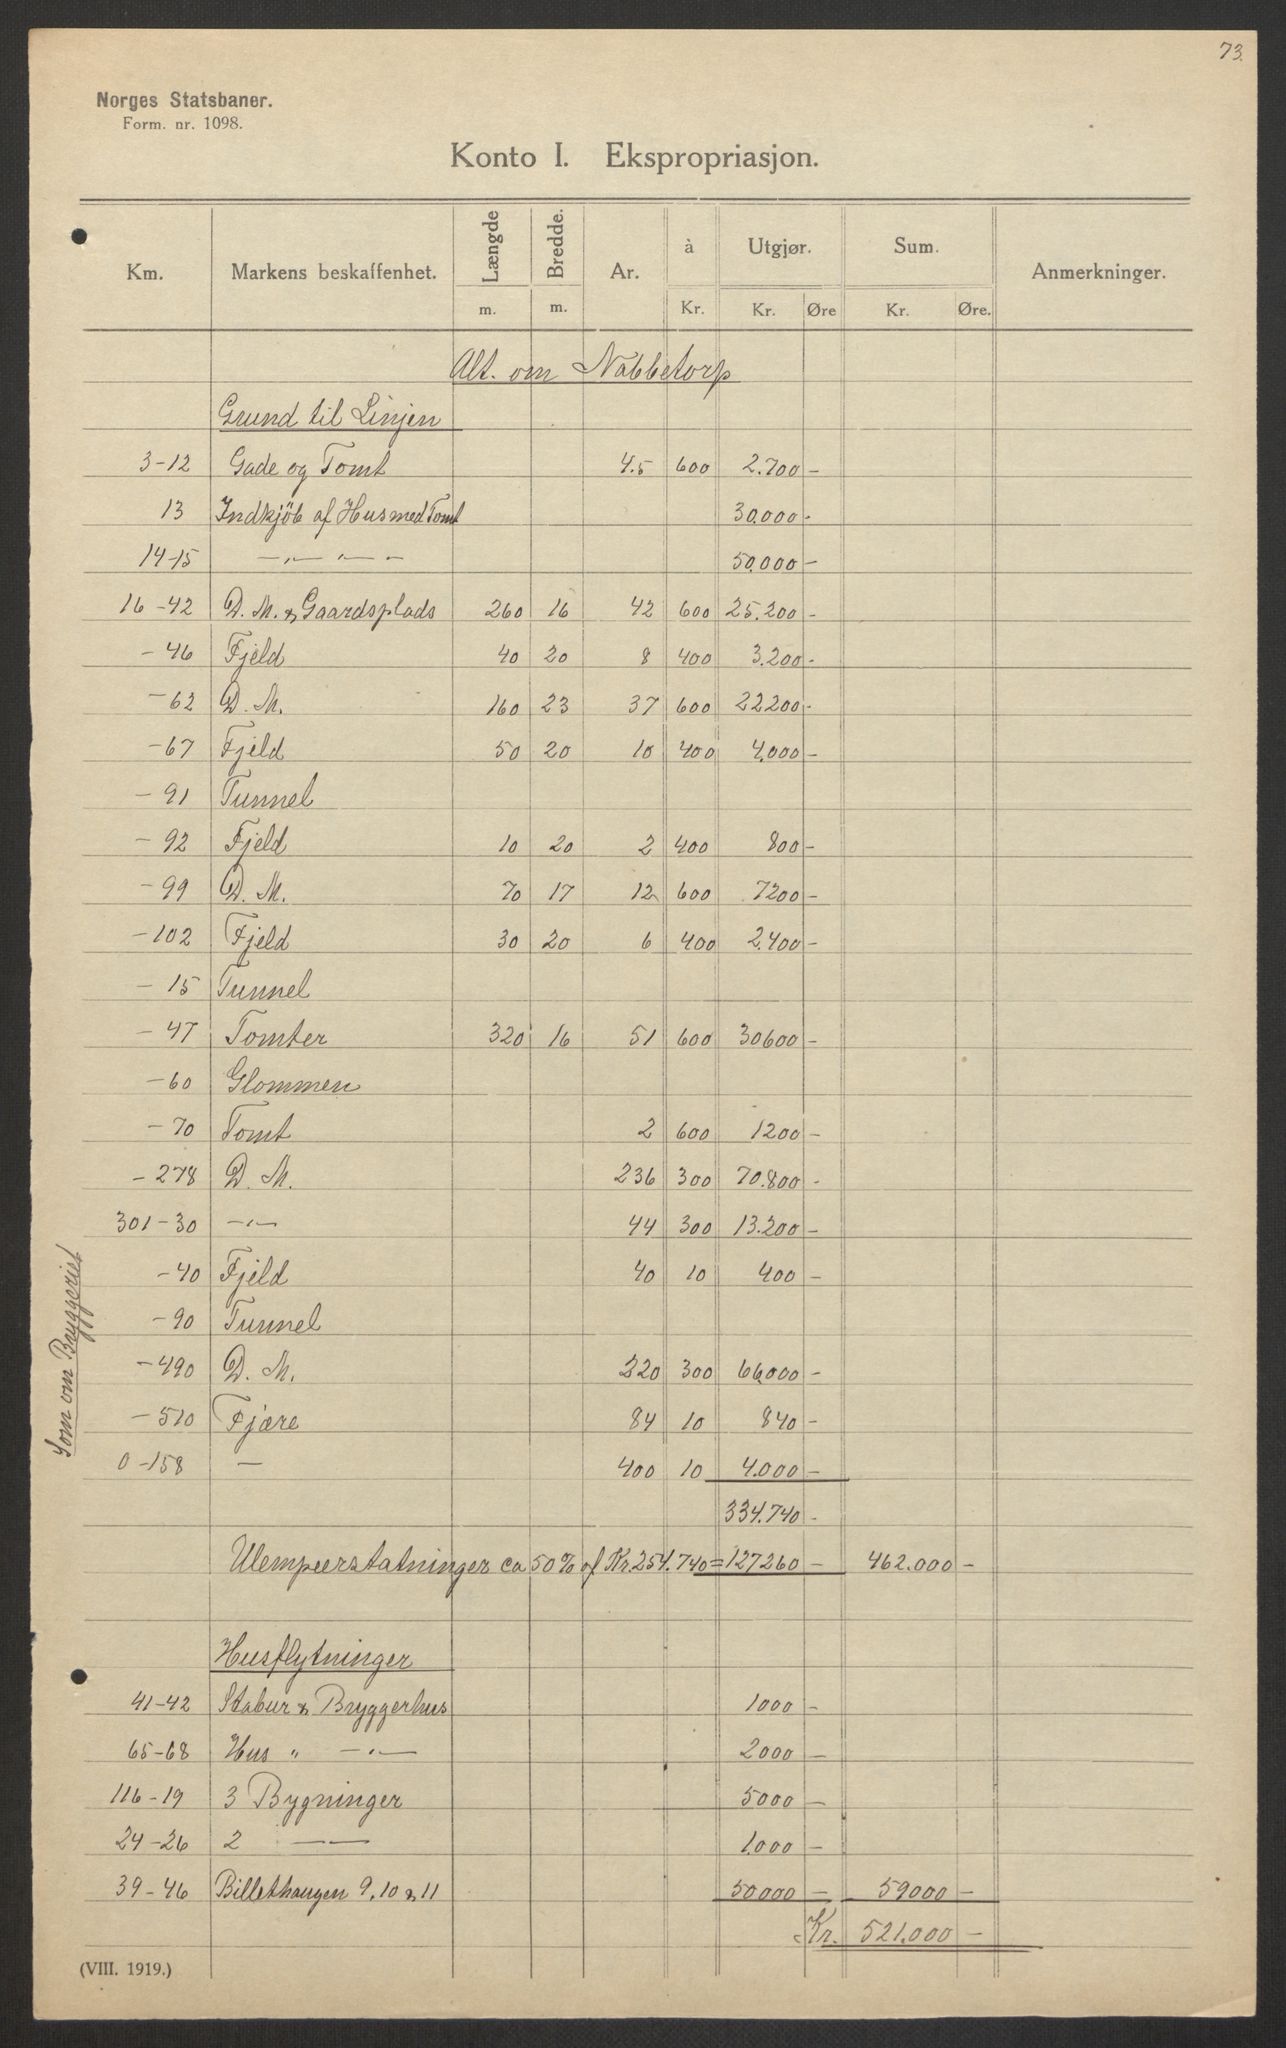 73.
Norges Statsbaner.
Form. nr. 1098.
Konto I. Ekspropriasjon.
Km. Markens beskaffenhet. Længde m. Bredde. m. Ar. à Kr. Utgjør. Kr. Øre Sum. Kr. Øre. Anmerkninger.
Alt. om Nabbetorp
Grund til Linjen
3-12 Gade og Tomt 4.5 600 2.700 -
13 Indkjöb af Hus med Tomt 30.000 -
14-15 - " - " - 50.000 -
16-42 D. M. & Gaardsplads 260 16 42 600 25.200 -
-46 Fjeld 40 20 8 400 3.200 -
-62 D. M. 160 23 37 600 22200 -
-67 Fjeld 50 20 10 400 4.000 -
-91 Tunnel
-92 Fjeld 10 20 2 400 800 -
-99 D. M. 70 17 12 600 7200 -
-102 Fjeld 30 20 6 400 2.400 -
-15 Tunnel
-47 Tomter 320 16 51 600 30600 -
-60 Glommen
-70 Tomt 2 600 1200 -
-278 D. M. 236 300 70.800 -
301-30 - " - 44 300 13.200 -
-40 Fjeld 40 10 400 -
-90 Tunnel
-490 D. M. 220 300 66.000 -
-510 Fjære 84 10 840 -
0-158 - 400 10 4.000 -
334.740 -
Ulempeerstatninger ca 50% af Kr. 254.740 = 127260 - 462.000 -
Husflytninger
41-42 Stabur & Bryggerhus 1000 -
65-68 Hus " - " - 2000 -
116-19 3 Bygninger 5000 -
24-26 2 - - 1.000 -
39-46 Billethaugen 9, 10 & 11 50.000 - 59000 -
Kr. 521.000 -
(VIII. 1919.)
Som om Bryggeriet